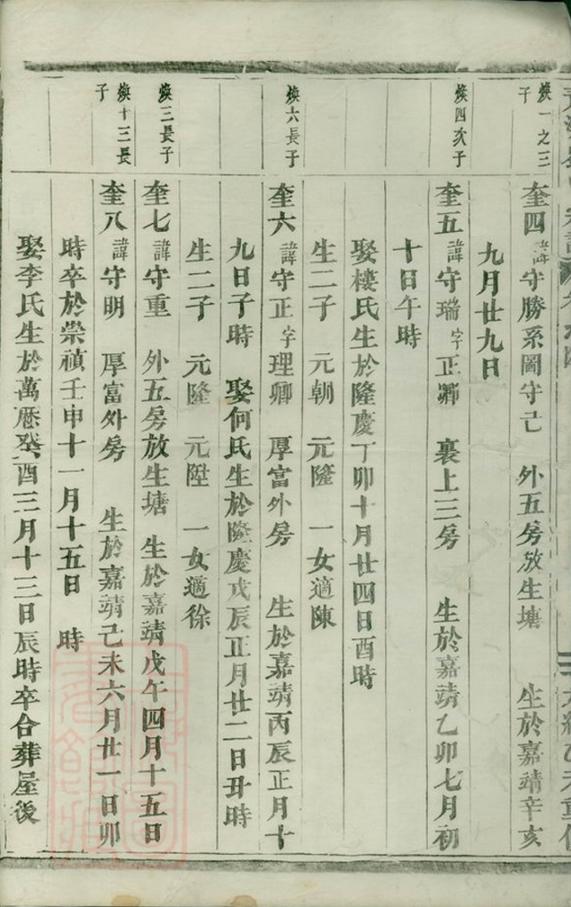 煥一之三子
奎四 諱守勝系圖守己 外五房放生塘 生於嘉靖辛亥
九月廿九日
煥四次子
奎五 諱守瑞 字正卿 裏上三房 生於嘉靖乙卯七月初
十日午時
娶樓氏生於隆慶丁卯十月廿四日酉時
生二子 元朝 元隆 一女適陳
煥六長子
奎六 諱守正 字理卿 厚富外房 生於嘉靖丙辰正月十
九日子時 娶何氏生於隆慶戊辰正月廿二日丑時
生二子 元隆 元陞 一女適徐
煥三長子
奎七 諱守重 外五房放生塘 生於嘉靖戊午四月十五日
煥十三長子
奎八 諱守明 厚富外房 生於嘉靖己未六月廿一日卯
時卒於崇禎壬申十一月十五日 時
娶李氏生於萬厯癸酉三月十三日辰時卒合葬屋後